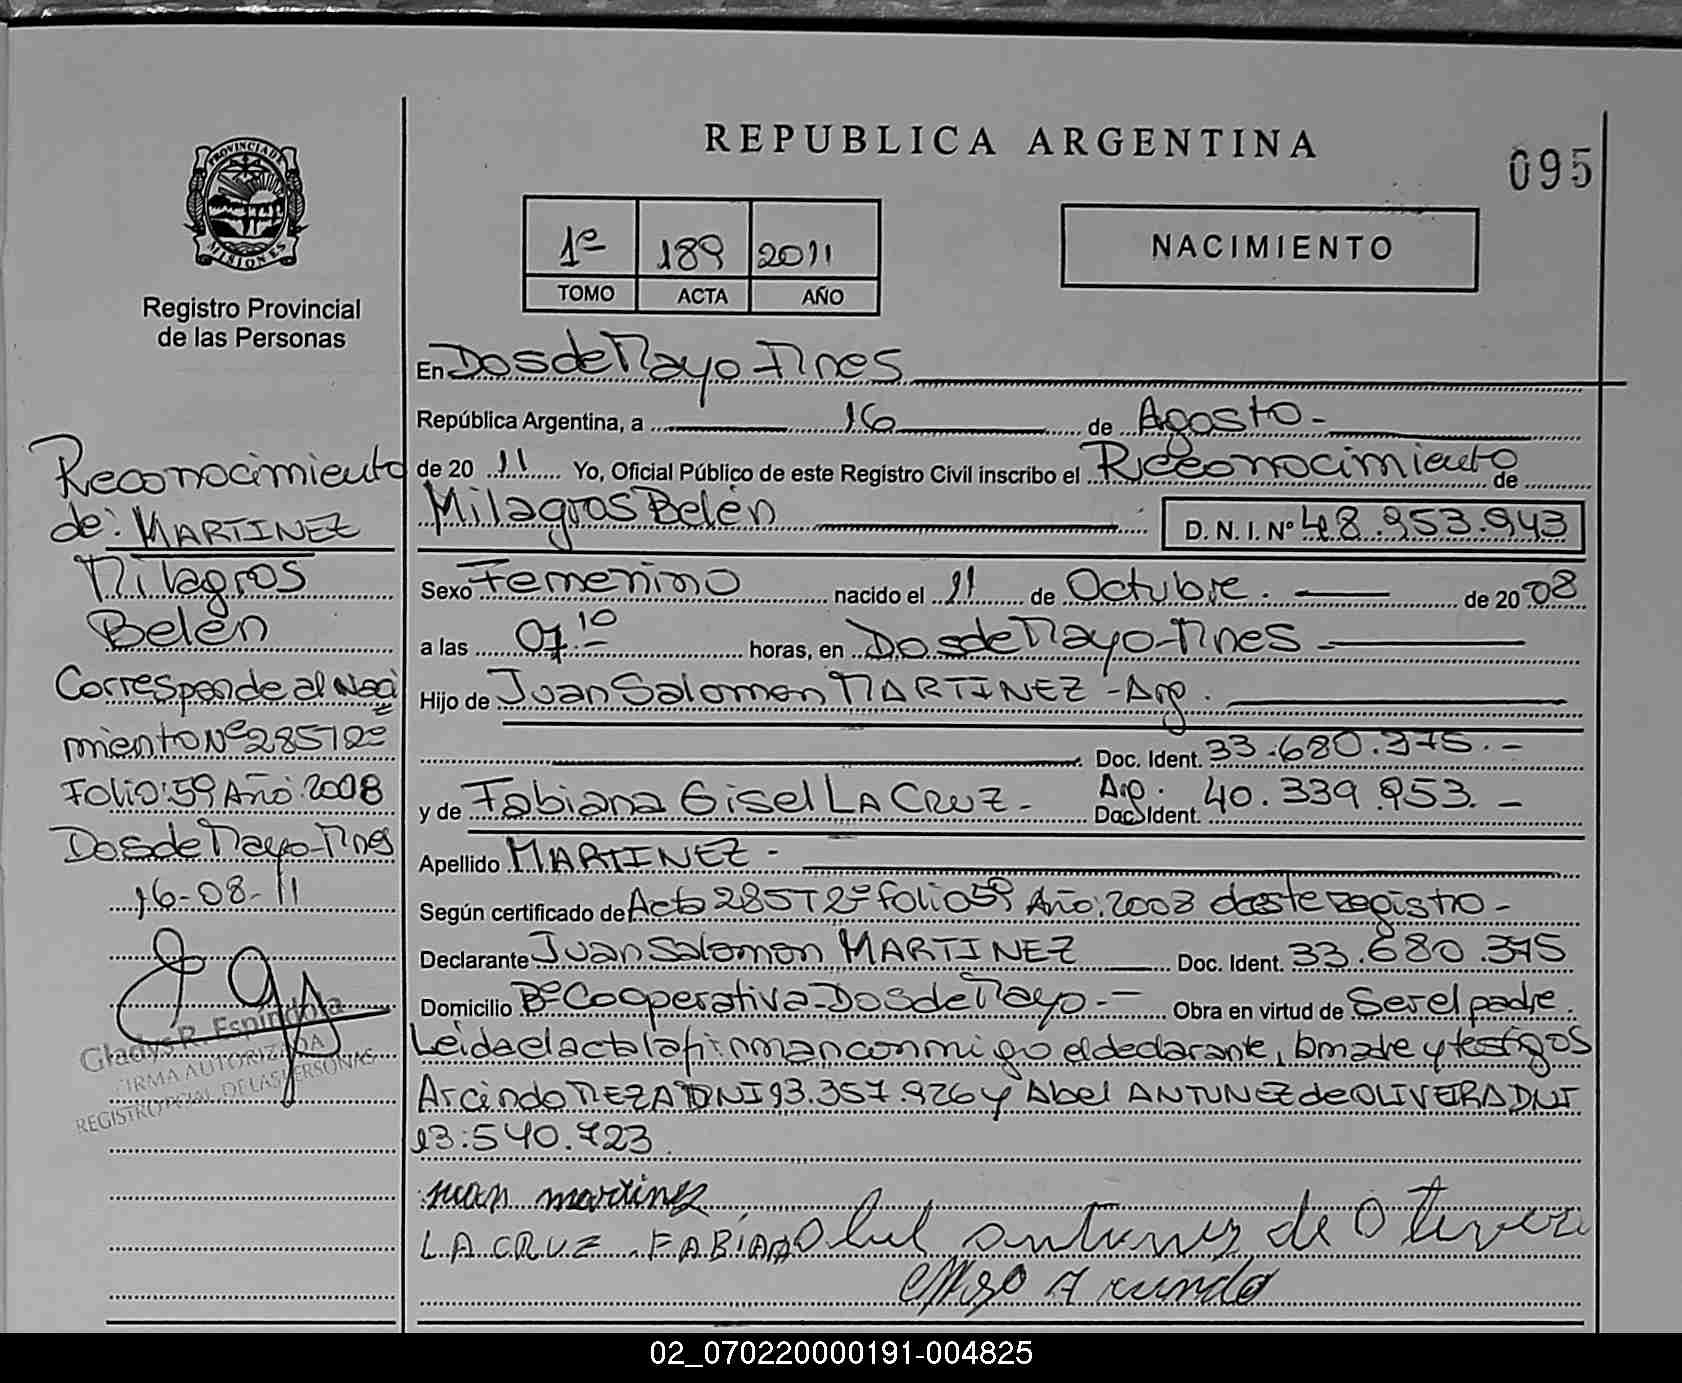 REPUBLICA ARGENTINA
095
PROVINCIA DE
MISIONES
Registro Provincial
de las Personas
1º 189 2011
TOMO ACTA AÑO
NACIMIENTO
En Dos de Mayo-Mnes
República Argentina, a 16 de Agosto -
de 20 11 Yo, Oficial Público de este Registro Civil inscribo el Reconocimiento de
Milagros Belén D. N. I. Nº 48.953.943
Sexo Femenino nacido el 11 de Octubre. de 20 08
a las 07 10 horas, en Dos de Mayo-Mnes -
Hijo de Juan Salomon MARTINEZ - Arg.
Doc. Ident. 33.680.375.-
y de Fabiana Gisel LA CRUZ - Arg. Doc. Ident. 40.339.953.-
Apellido MARTINEZ -
Según certificado de Acta 285 T 2º folio 59 Año: 2008 de este registro -
Declarante Juan Salomon MARTINEZ Doc. Ident. 33.680.375
Domicilio Bº Cooperativa-Dos de Mayo.- Obra en virtud de Ser el padre.
Leida el acta la firman conmigo el declarante, la madre y testigos
Arcindo MEZA DNI 93.357.926 y Abel ANTUNEZ de OLIVEIRA DNI
13:540.723
juan martinez
LA CRUZ FABIANA
Reconocimiento
de: MARTINEZ
Milagros
Belén
Corresponde al Naci
miento Nº 285 T 2º
Folio: 59 Año: 2008
Dos de Mayo-Mnes
16-08-11
Gladys R. Espíndola
FIRMA AUTORIZADA
REGISTRO PCIAL. DE LAS PERSONAS
02_070220000191-004825